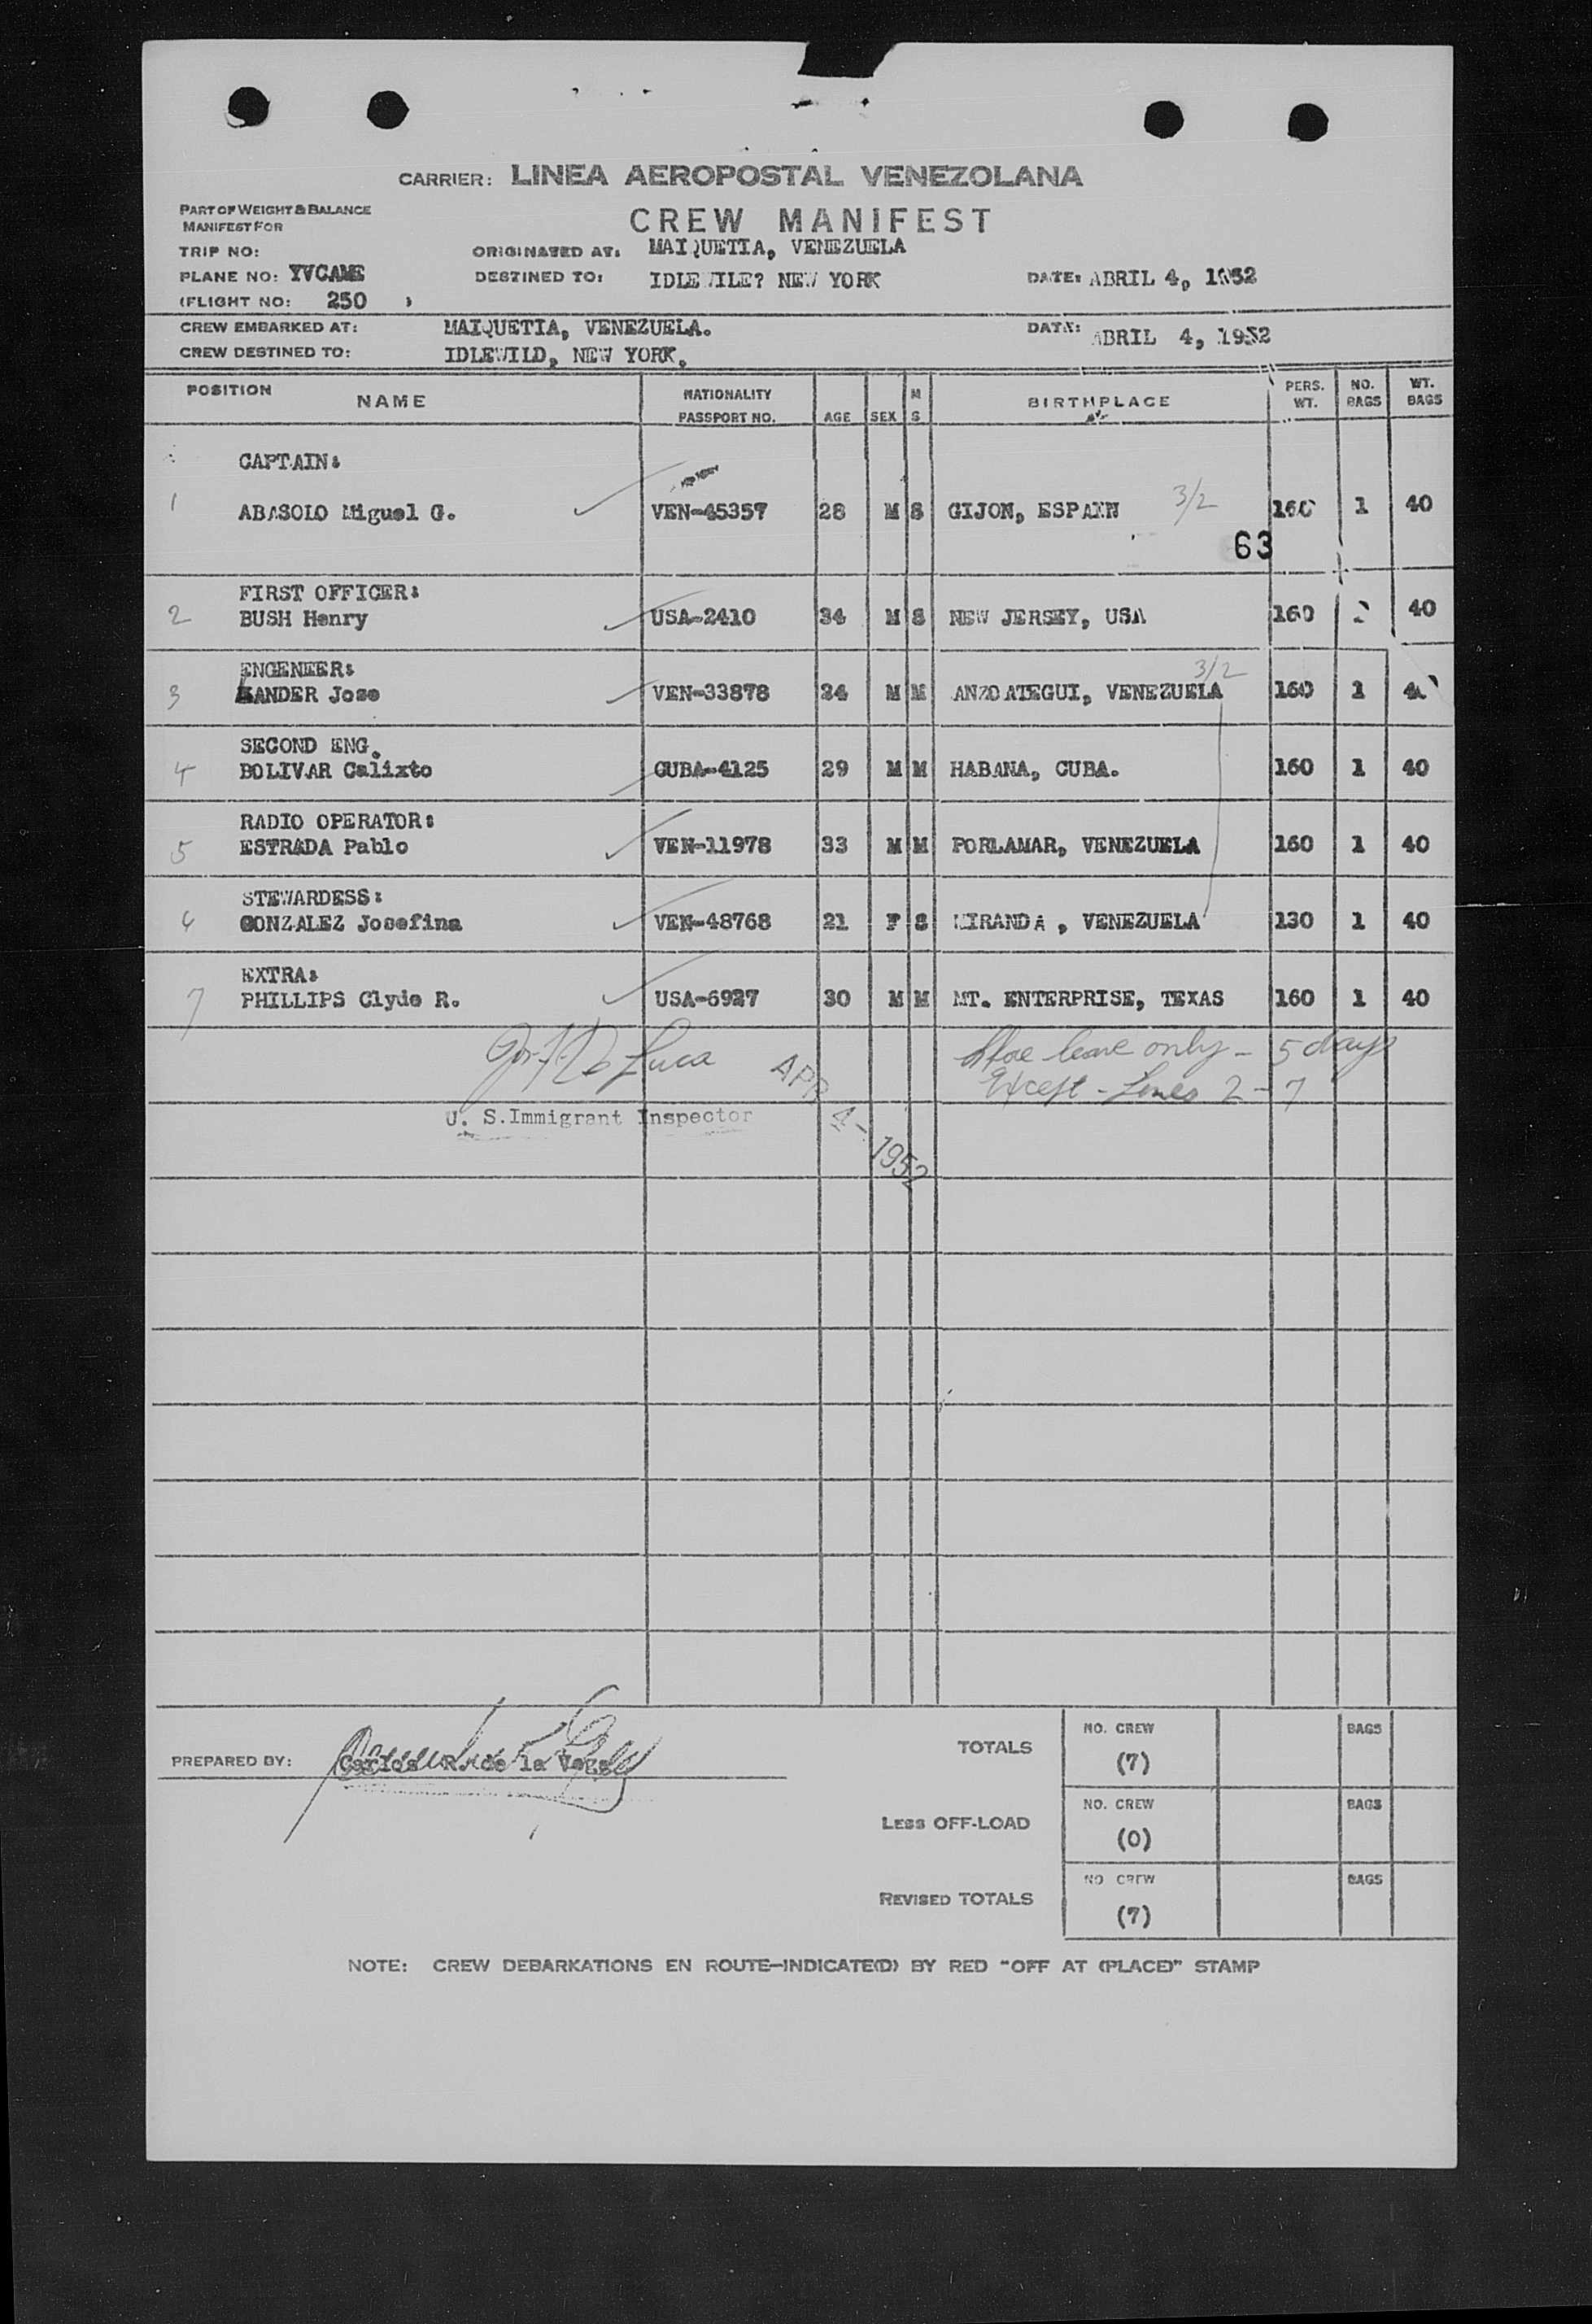 CARRIER: LINEA AEROPOSTAL VENEZOLANA
PART OF WEIGHT & BALANCE
MANIFEST FOR
CREW MANIFEST
TRIP NO: ORIGINATED AT: MAIQUETIA, VENEZUELA
PLANE NO: YVCAME DESTINED TO: IDLEWILE? NEW YORK DATE: ABRIL 4, 1952
(FLIGHT NO: 250 )
CREW EMBARKED AT: MAIQUETIA, VENEZUELA. DATE: ABRIL 4, 1952
CREW DESTINED TO: IDLEWILD, NEW YORK.
POSITION NAME NATIONALITY PASSPORT NO. AGE SEX M S BIRTHPLACE PERS. WT. NO. BAGS WT. BAGS
CAPTAIN:
1 ABASOLO Miguel G. VEN-45357 28 M S GIJON, ESPAIN 3/2 160 1 40
63
FIRST OFFICER:
2 BUSH Henry USA-2410 34 M S NEW JERSEY, USA 160 40
ENGENEER: 3/2
3 ANDER Jose VEN-33878 24 M M ANZOATEGUI, VENEZUELA 160 1 40
SECOND ENG.
4 BOLIVAR Calixto CUBA-4125 29 M M HABANA, CUBA. 160 1 40
RADIO OPERATOR:
5 ESTRADA Pablo VEN-11978 33 M M PORLAMAR, VENEZUELA 160 1 40
STEWARDESS:
6 GONZALEZ Josefina VEN-48768 21 F S MIRANDA , VENEZUELA 130 1 40
EXTRA:
7 PHILLIPS Clyde R. USA-6927 30 M M MT. ENTERPRISE, TEXAS 160 1 40
De Luca Shore leave only - 5 days
Except - Lines 2 - 7
U. S.Immigrant Inspector
APR 4 - 1952
PREPARED BY: Carlos R. de la Vega
TOTALS NO. CREW (7) BAGS
LESS OFF-LOAD NO. CREW (0) BAGS
REVISED TOTALS NO CREW (7) BAGS
NOTE: CREW DEBARKATIONS EN ROUTE-INDICATE(D) BY RED "OFF AT (PLACE)" STAMP